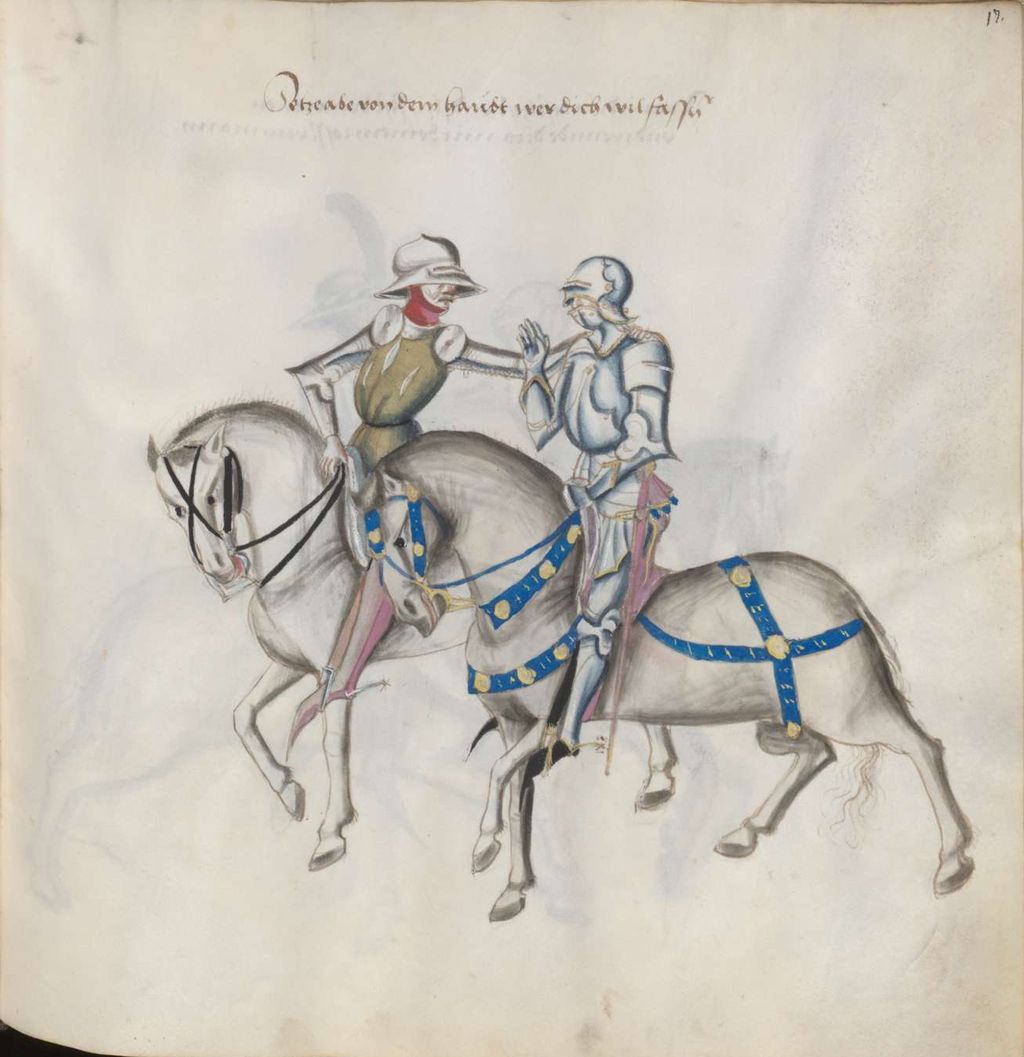 17.
Setze abe von dem haubt wer dich wil fassn̄